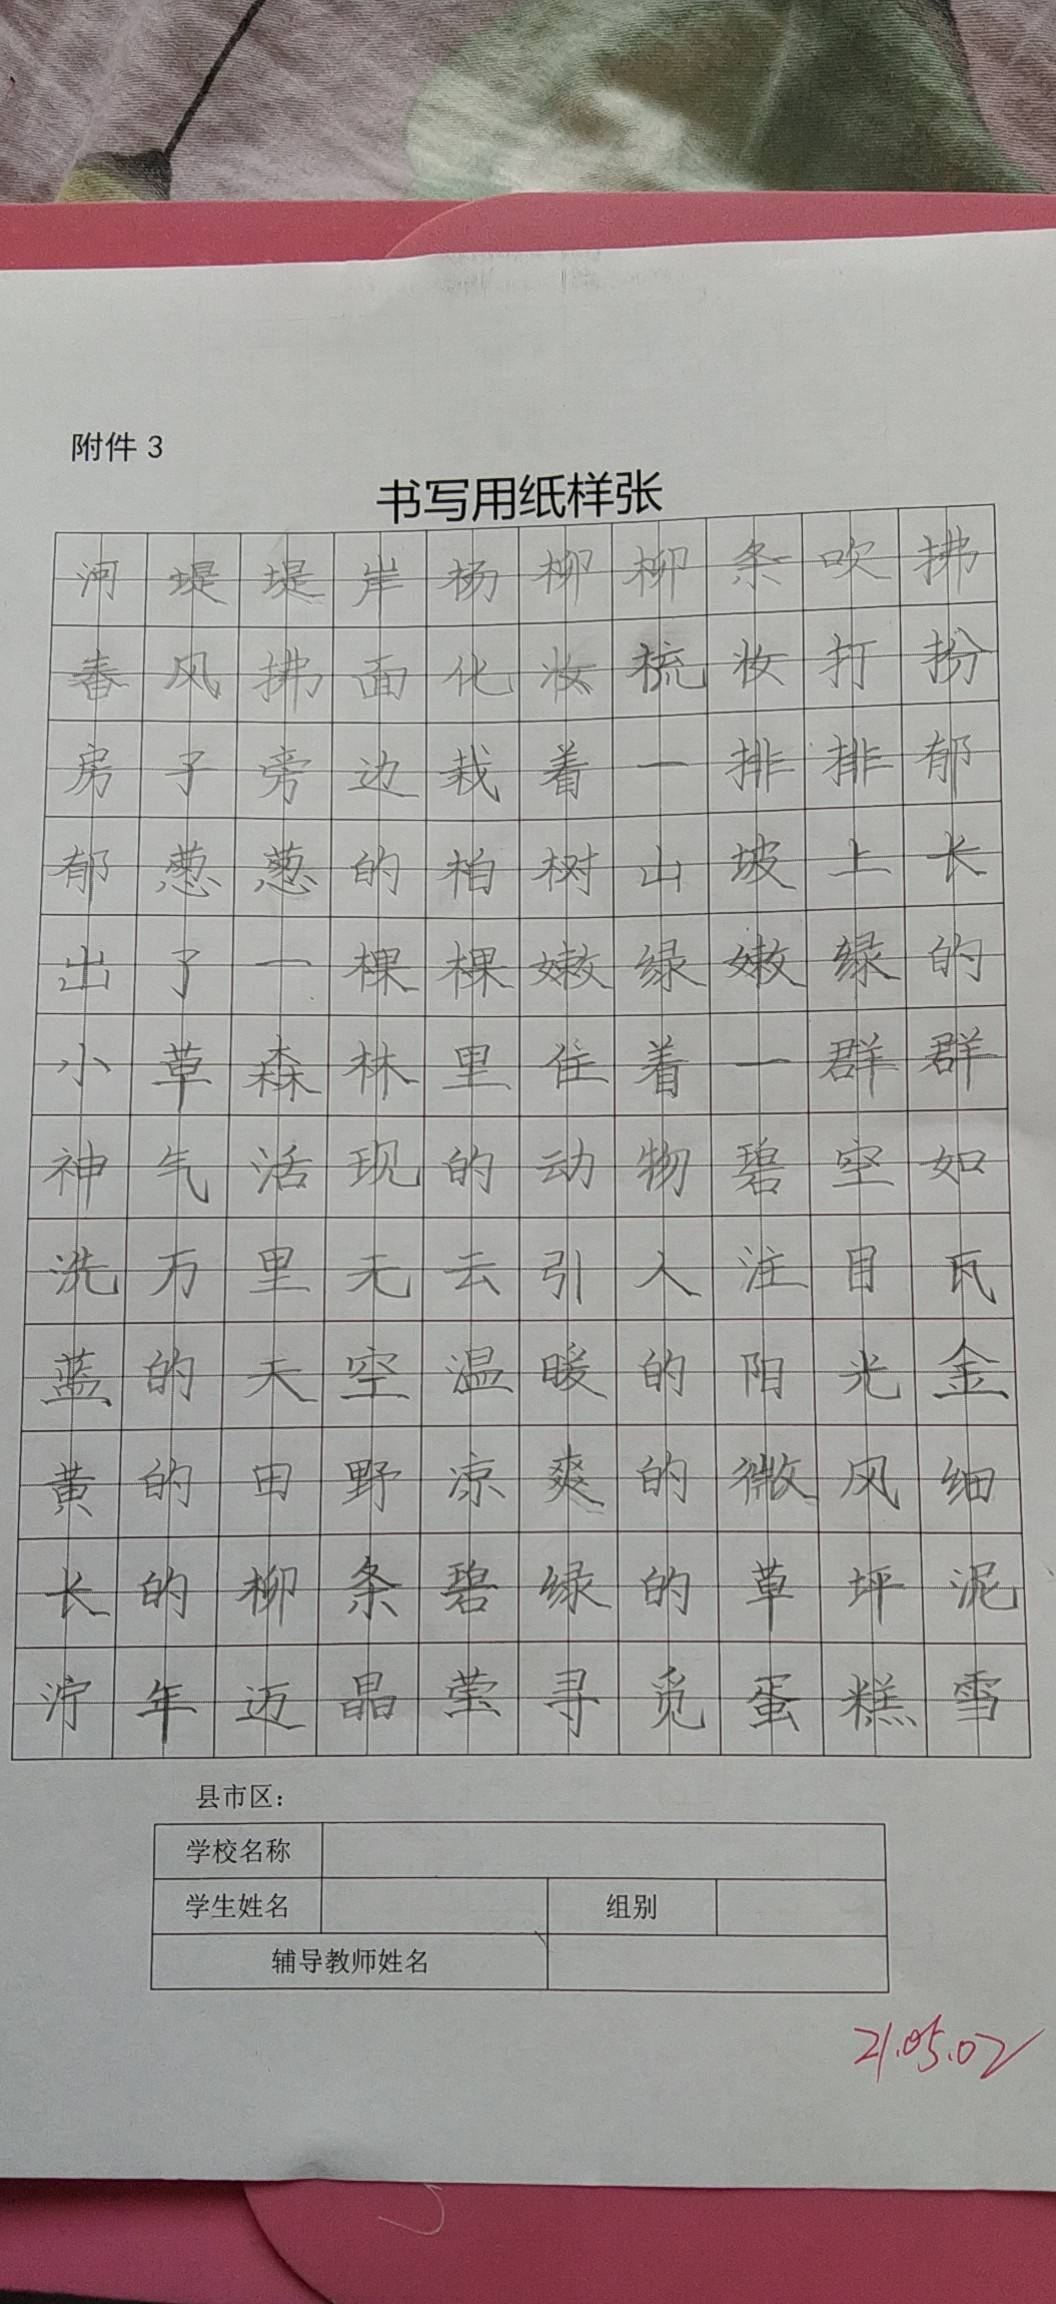 附件 3
书写用纸样张
河堤堤岸杨柳柳条吹拂
春风拂面化妆梳妆打扮
房子旁边栽着一排排郁
郁葱葱的柏树山坡上长
出了一棵棵嫩绿嫩绿的
小草森林里住着一群群
神气活现的动物碧空如
洗万里无云引人注目瓦
蓝的天空温暖的阳光金
黄的田野凉爽的微风细
长的柳条碧绿的草坪泥
泞年迈晶莹寻觅蛋糕雪
县市区：
学校名称
学生姓名 组别
辅导教师姓名
21.05.02